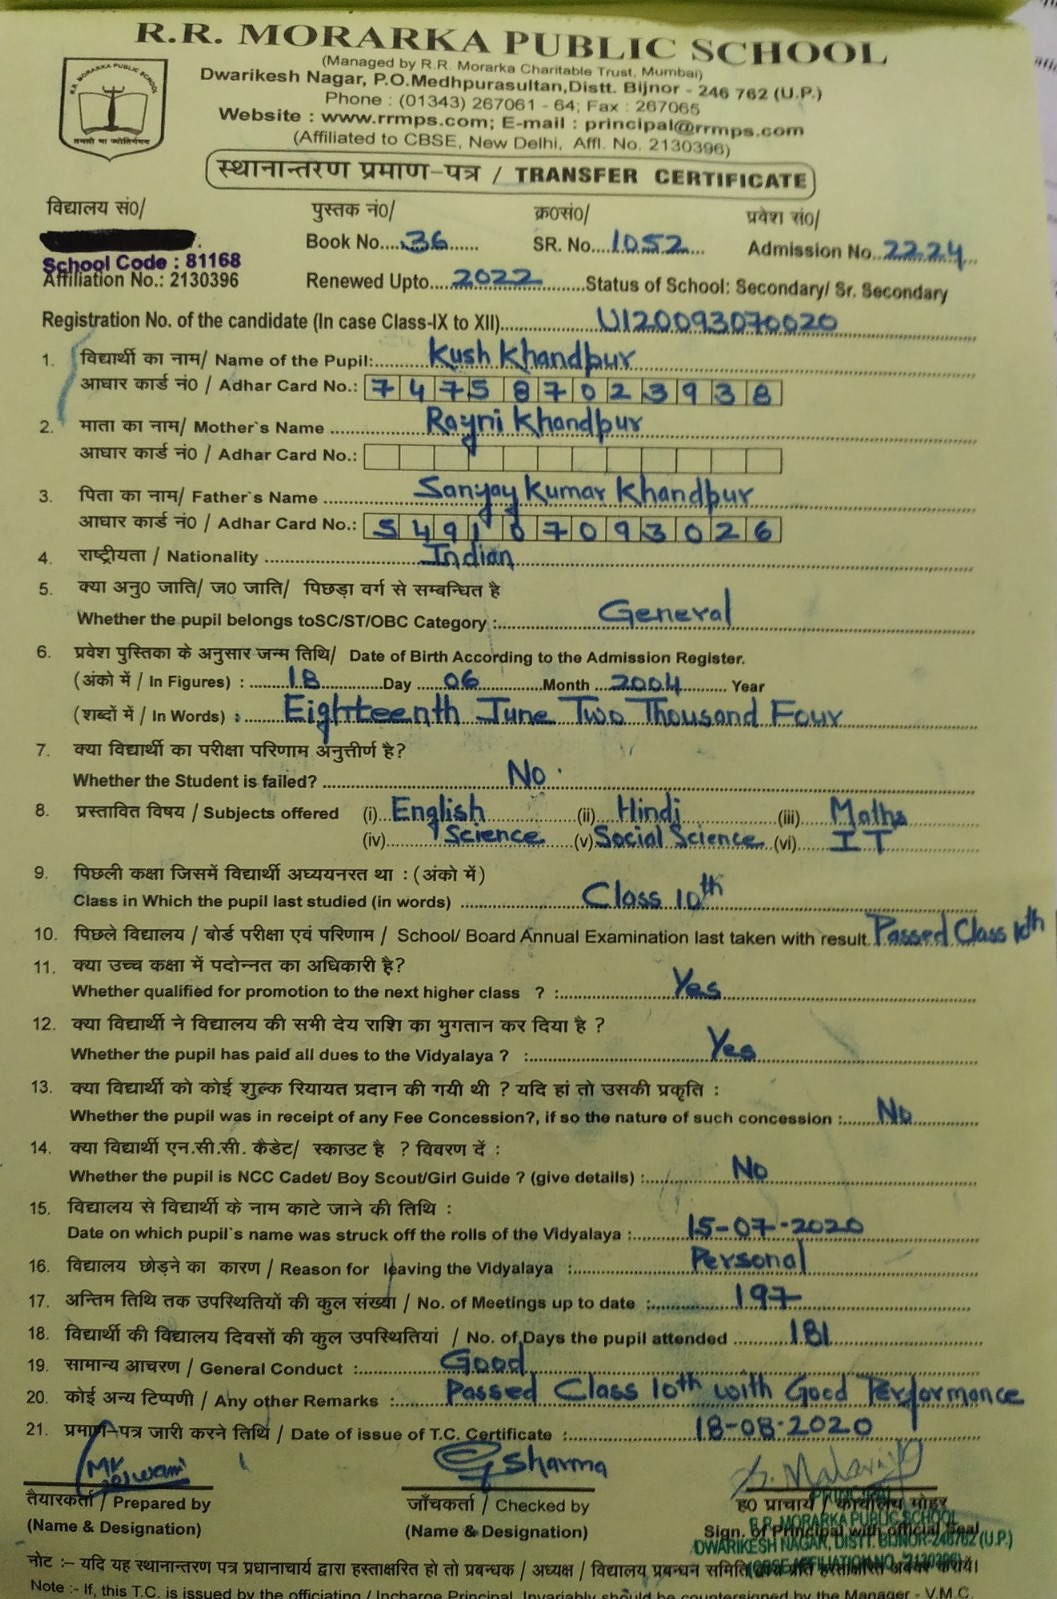 R.R. MORARKA PUBLIC SCHOOL
(Managed by R.R. Morarka Charitable Trust, Mumbai)
Dwarikesh Nagar, P.O.Medhpurasultan,Distt. Bijnor - 246 762 (U.P.)
Phone : (01343) 267061 - 64; Fax : 267065
Website : www.rrmps.com; E-mail : principal@rrmps.com
(Affiliated to CBSE, New Delhi, Affl. No. 2130396)
स्थानान्तरण प्रमाण-पत्र / TRANSFER CERTIFICATE
विद्यालय सं0/ पुस्तक नं0/ क्र0सं0/ प्रवेश सं0/
Book No. 36 SR. No. 1052 Admission No. 2224
School Code : 81168
Affiliation No.: 2130396 Renewed Upto 2022 Status of School: Secondary/ Sr. Secondary
Registration No. of the candidate (In case Class-IX to XII) U120093070020
1. विद्यार्थी का नाम/ Name of the Pupil: Kush Khandpur
आघार कार्ड नं0 / Adhar Card No.: 747587023938
2. माता का नाम/ Mother`s Name Rayni Khandpur
आघार कार्ड नं0 / Adhar Card No.:
3. पिता का नाम/ Father`s Name Sanjay Kumar Khandpur
आघार कार्ड नं0 / Adhar Card No.: 549107093026
4. राष्ट्रीयता / Nationality Indian
5. क्या अनु0 जाति/ ज0 जाति/ पिछड़ा वर्ग से सम्बन्धित है
Whether the pupil belongs toSC/ST/OBC Category : General
6. प्रवेश पुस्तिका के अनुसार जन्म तिथि/ Date of Birth According to the Admission Register.
(अंको में / In Figures) : 18 Day 06 Month 2004 Year
(शब्दों में / In Words) : Eighteenth June Two Thousand Four
7. क्या विद्यार्थी का परीक्षा परिणाम अनुत्तीर्ण है?
Whether the Student is failed? No
8. प्रस्तावित विषय / Subjects offered (i) English (ii) Hindi (iii) Maths
(iv) Science (v) Social Science (vi) IT
9. पिछली कक्षा जिसमें विद्यार्थी अघ्ययनरत था : (अंको में)
Class in Which the pupil last studied (in words) Class 10th
10. पिछले विद्यालय / बोर्ड परीक्षा एवं परिणाम / School/ Board Annual Examination last taken with result Passed Class 10th
11. क्या उच्च कक्षा में पदोन्नत का अधिकारी है?
Whether qualified for promotion to the next higher class ? : Yes
12. क्या विद्यार्थी ने विद्यालय की सभी देय राशि का भुगतान कर दिया है ?
Whether the pupil has paid all dues to the Vidyalaya ? : Yes
13. क्या विद्यार्थी को कोई शुल्क रियायत प्रदान की गयी थी ? यदि हां तो उसकी प्रकृति :
Whether the pupil was in receipt of any Fee Concession?, if so the nature of such concession : No
14. क्या विद्यार्थी एन.सी.सी. कैडेट/ स्काउट है ? विवरण दें :
Whether the pupil is NCC Cadet/ Boy Scout/Girl Guide ? (give details) : No
15. विद्यालय से विद्यार्थी के नाम काटे जाने की तिथि :
Date on which pupil`s name was struck off the rolls of the Vidyalaya : 15-07-2020
16. विद्यालय छोड़ने का कारण / Reason for leaving the Vidyalaya : Personal
17. अन्तिम तिथि तक उपस्थितियों की कुल संख्या / No. of Meetings up to date : 197
18. विद्यार्थी की विद्यालय दिवसों की कुल उपस्थितियां / No. of Days the pupil attended 181
19. सामान्य आचरण / General Conduct : Good
20. कोई अन्य टिप्पणी / Any other Remarks : Passed Class 10th with Good Performance
21. प्रमाण-पत्र जारी करने तिथि / Date of issue of T.C. Certificate : 18-08-2020
Mr Goswami Sharma
तैयारकर्ता / Prepared by जाँचकर्ता / Checked by ह0 प्राचार्य / कार्यालय मोहर
(Name & Designation) (Name & Designation) Sign. of Principal with official Seal
PRINCIPAL
R.R. MORARKA PUBLIC SCHOOL
DWARIKESH NAGAR, DISTT. BIJNOR-246762 (U.P.)
(CBSE AFFILIATION NO. 2130396)
नोट :– यदि यह स्थानान्तरण पत्र प्रधानाचार्य द्वारा हस्ताक्षरित हो तो प्रबन्धक / अध्यक्ष / विद्यालय प्रबन्धन समिति द्वारा प्रति हस्ताक्षरित अवश्य करायें।
Note :- If, this T.C. is issued by the officiating / Incharge Principal. Invariably should be countersigned by the Manager - V.M.C.